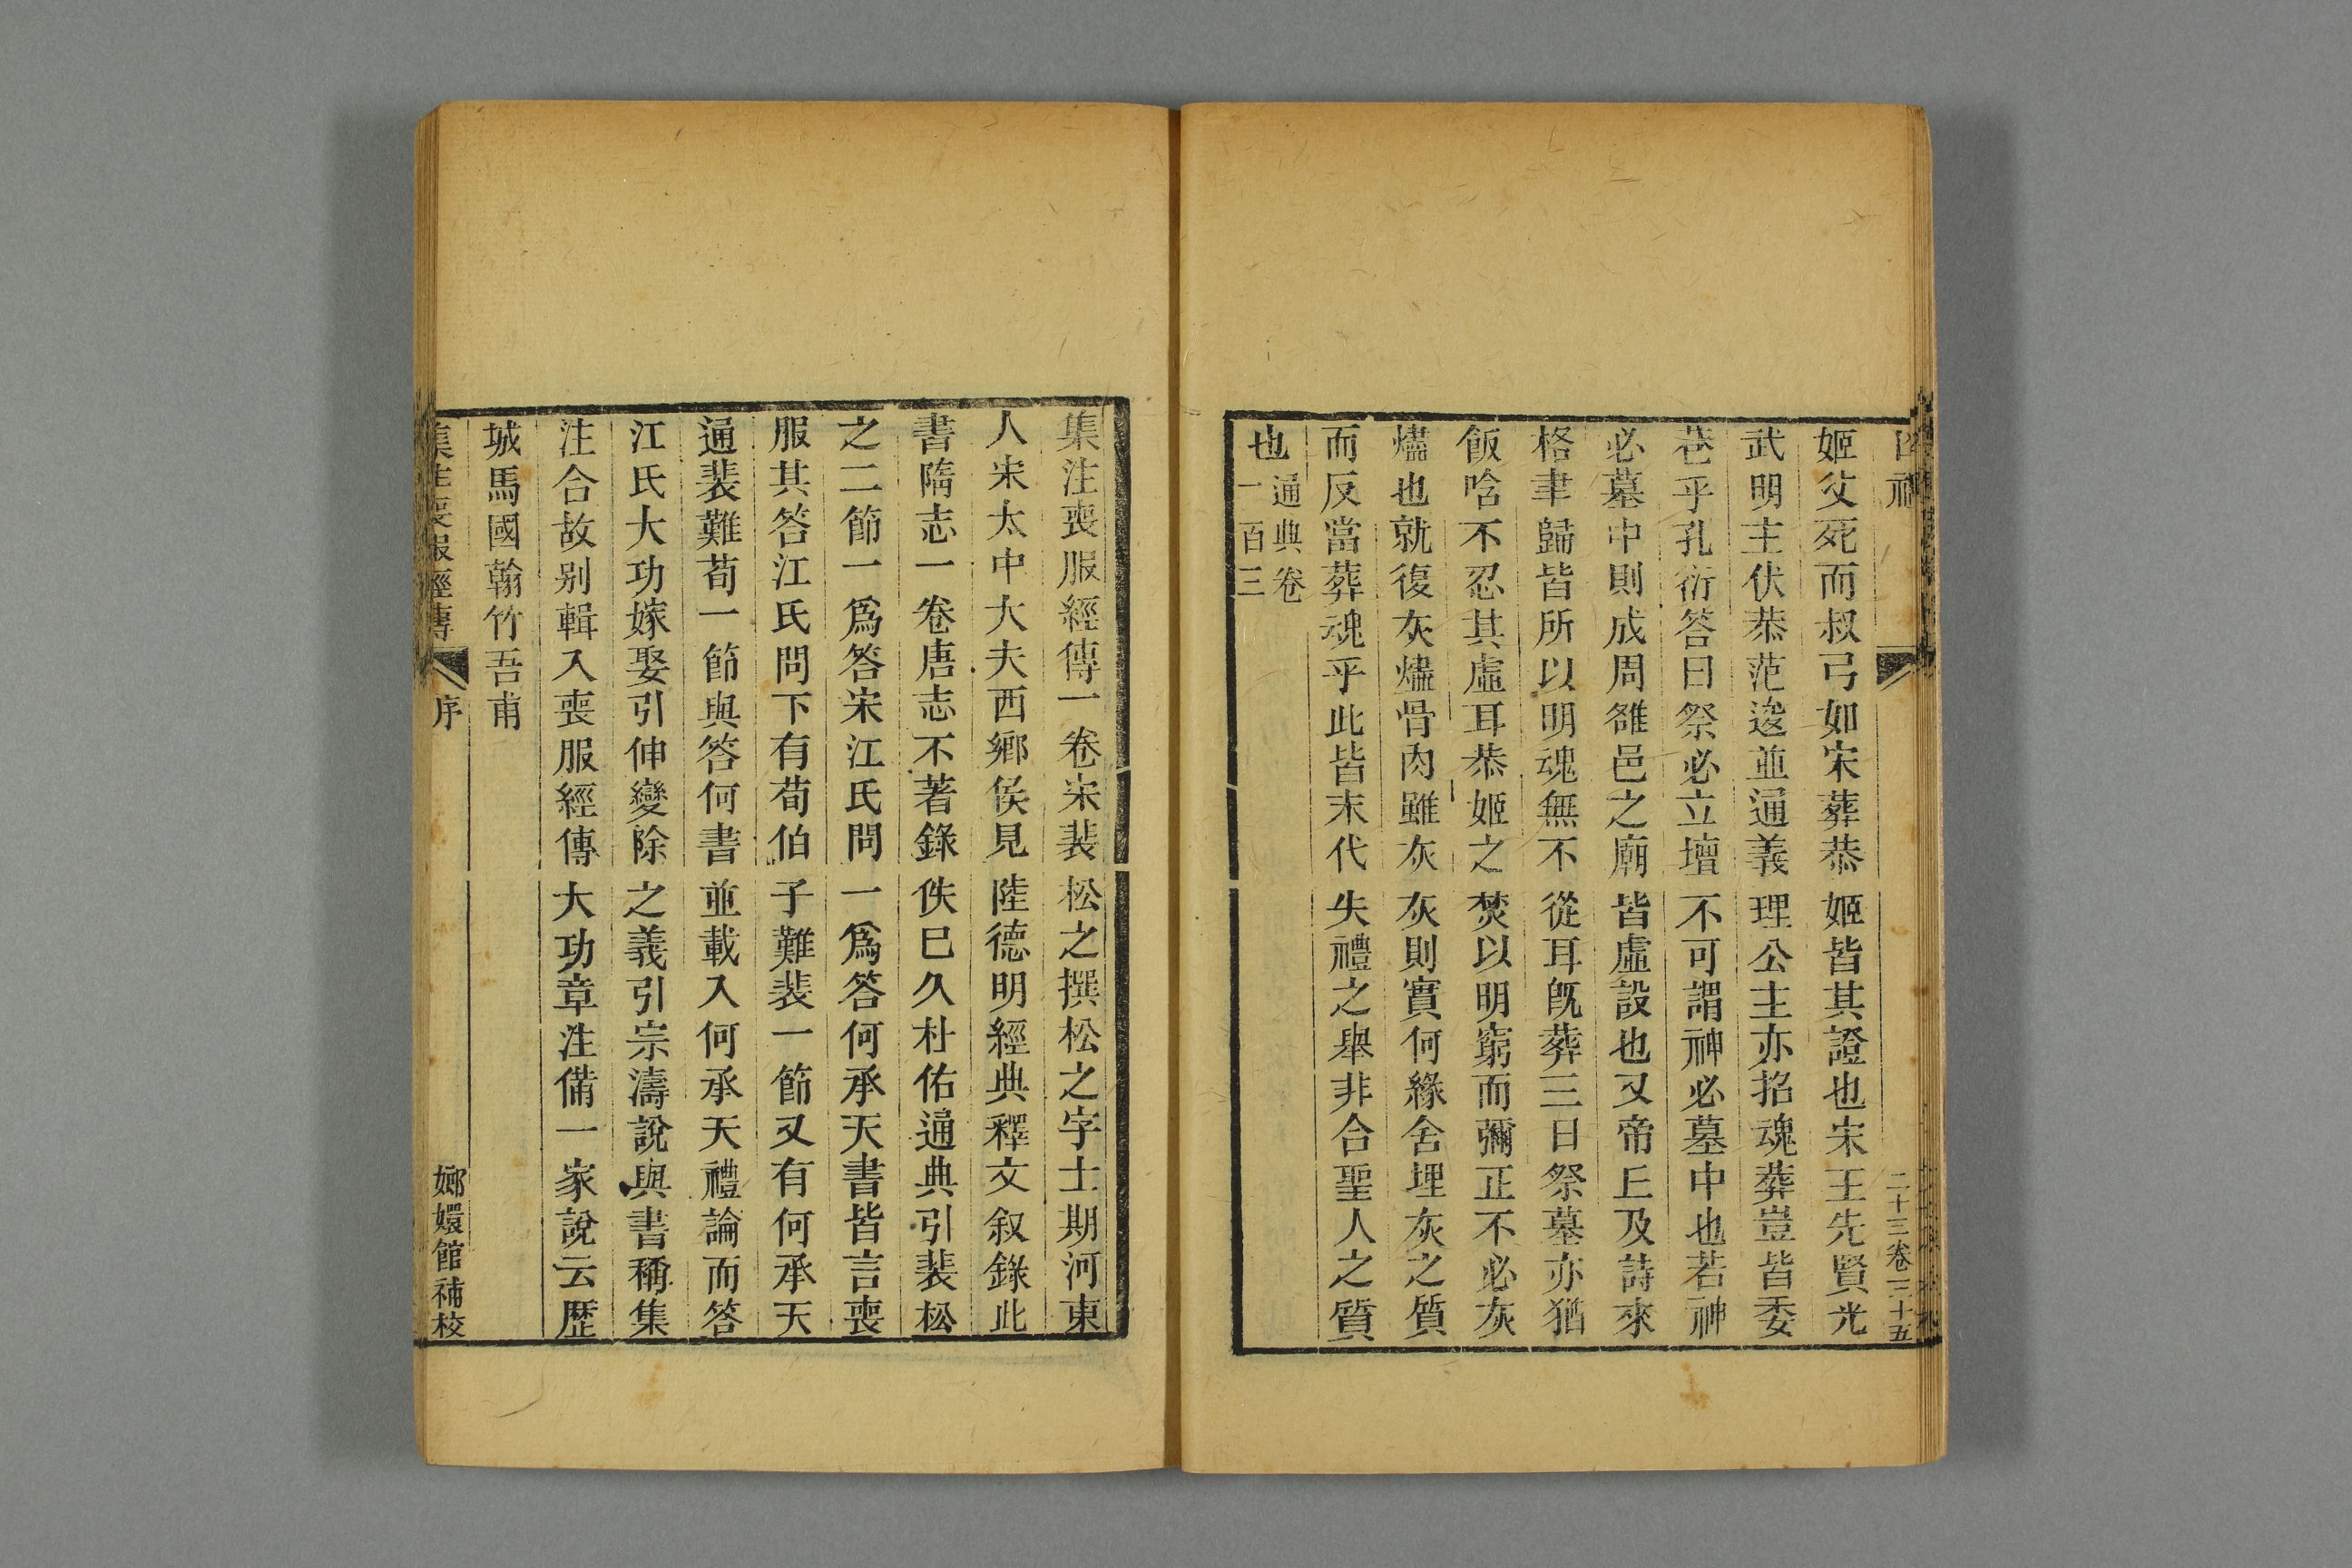 凶禮
二十三卷三十五
姬父死而叔弓如宋葬恭姬皆其證也宋王先賢光
武明主伏恭范逡並通義理公主亦招魂葬豈皆委
巷乎孔衍答曰祭必立壇不可謂神必墓中也若神
必墓中則成周雒邑之廟皆虛設也又帝丘及詩來
格聿歸皆所以明魂無不從耳旣葬三日祭墓亦猶
飯唅不忍其虛耳恭姬之焚以明窮而彌正不必灰
燼也就復灰燼骨肉雖灰灰則實何緣舍埋灰之質
而反當葬魂乎此皆末代失禮之舉非合聖人之質
也通典卷
一百三
集注喪服經傳一卷宋裴松之撰松之字士期河東
人宋太中大夫西鄉侯見陸德明經典釋文叙錄此
書隋志一卷唐志不著錄佚巳久杜佑通典引裴松
之二節一爲答宋江氏問一爲答何承天書皆言喪
服其答江氏問下有荀伯子難裴一節又有何承天
通裴難荀一節與答何書並載入何承天禮論而答
江氏大功嫁娶引伸變除之義引宗濤說與書稱集
注合故别輯入喪服經傳大功章注備一家說云歷
城馬國翰竹吾甫
集注喪服經傳
序
嫏嬛館補校